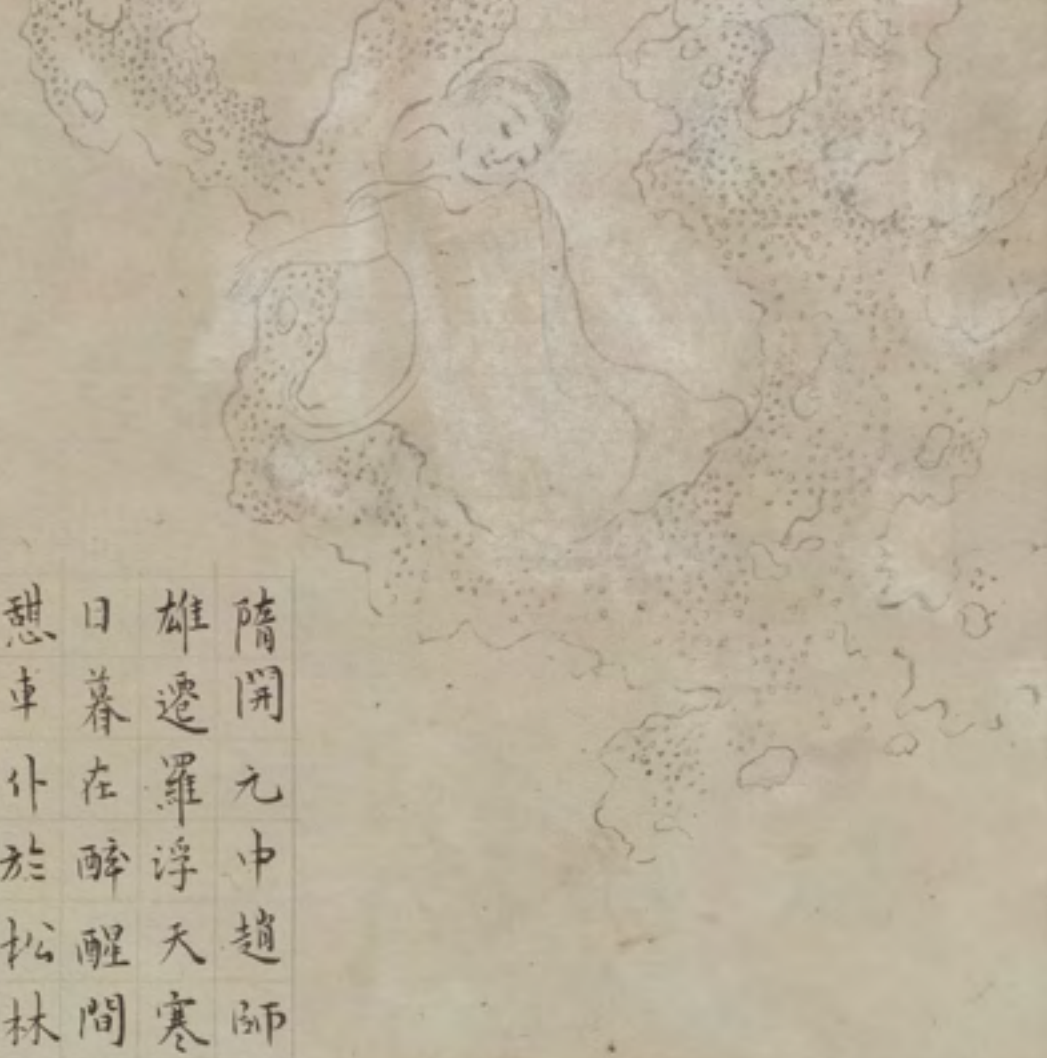 隋開元中趙師
雄遷羅浮天寒
日暮在醉醒間
憇車仆於松林